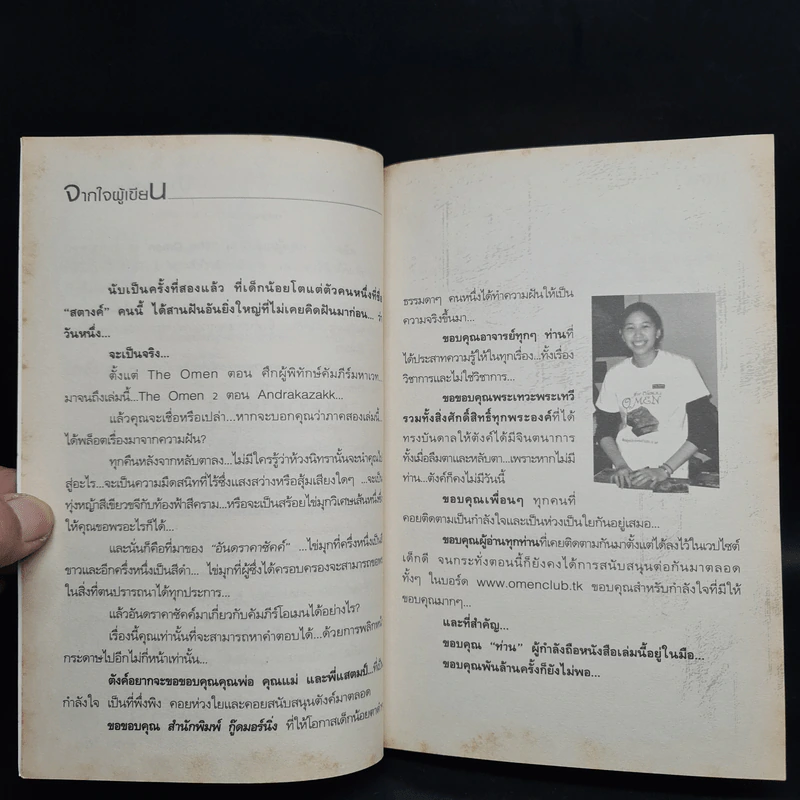 จากใจผู้เขียน
นับเป็นครั้งที่สองแล้ว ที่เด็กน้อยโตแต่ตัวคนหนึ่งที่ชื่อ
“สตางค์” คนนี้ ได้สานฝันอันยิ่งใหญ่ที่ไม่เคยคิดฝันมาก่อน...
วันหนึ่ง...
จะเป็นจริง...
ตั้งแต่ The Omen ตอน ศึกผู้พิทักษ์คัมภีร์มหาเวท...
มาจนถึงเล่มนี้...The Omen 2 ตอน Andrakazakk...
แล้วคุณจะเชื่อหรือเปล่า...หากจะบอกคุณว่าภาคสองเล่มนี้...
ได้พล็อตเรื่องมาจากความฝัน?
ทุกคืนหลังจากหลับตาลง...ไม่มีใครรู้ว่าห้วงนิทรานั้นจะนำคุณไป
สู่อะไร...จะเป็นความมืดสนิทที่ไร้ซึ่งแสงสว่างหรือสุ้มเสียงใดๆ ...จะเป็น
ทุ่งหญ้าสีเขียวขจีกับท้องฟ้าสีคราม...หรือจะเป็นสร้อยไข่มุกวิเศษเส้นหนึ่งที่
ให้คุณขอพรอะไรก็ได้...
และนั่นก็คือที่มาของ “อันดราคาซัคค์” ...ไข่มุกที่ครึ่งหนึ่งเป็นสี
ขาวและอีกครึ่งหนึ่งเป็นสีดำ... ไข่มุกที่ผู้ซึ่งได้ครอบครองจะสามารถขอพร
ในสิ่งที่ตนปรารถนาได้ทุกประการ...
แล้วอันดราคาซัคค์มาเกี่ยวกับคัมภีร์โอเมนได้อย่างไร?
เรื่องนี้คุณเท่านั้นที่จะสามารถหาคำตอบได้...ด้วยการพลิกหน้า
กระดาษไปอีกไม่กี่หน้าเท่านั้น...
ตังค์อยากจะขอขอบคุณคุณพ่อ คุณแม่ และพี่แสตมป์...ที่เป็น
กำลังใจ เป็นที่พึ่งพิง คอยห่วงใยและคอยสนับสนุนตังค์มาตลอด
ขอขอบคุณ สำนักพิมพ์ กู๊ดมอร์นิ่ง ที่ให้โอกาสเด็กน้อย
ธรรมดาๆ คนหนึ่งได้ทำความฝันให้เป็น
ความจริงขึ้นมา...
ขอบคุณอาจารย์ทุกๆ ท่านที่
ได้ประสาทความรู้ให้ในทุกเรื่อง...ทั้งเรื่อง
วิชาการและไม่ใช้วิชาการ...
ขอขอบคุณพระเทวะพระเทวี
รวมทั้งสิ่งศักดิ์สิทธิ์ทุกพระองค์ที่ได้
ทรงบันดาลให้ตังค์ได้มีจินตนาการ
ทั้งเมื่อลืมตาและหลับตา...เพราะหากไม่มี
ท่าน...ตังค์ก็คงไม่มีวันนี้
ขอบคุณเพื่อนๆ ทุกคนที่
คอยติดตามเป็นกำลังใจและเป็นห่วงเป็นใยกันอยู่เสมอ...
ขอบคุณผู้อ่านทุกท่านที่เคยติดตามกันมาตั้งแต่ได้ลงไว้ในเวปไซต์
เด็กดี จนกระทั่งตอนนี้ก็ยังคงได้การสนับสนุนต่อกันมาตลอด
ทั้งๆ ในบอร์ด www.omenclub.tk ขอบคุณสำหรับกำลังใจที่มีให้
ขอบคุณมากๆ...
และที่สำคัญ...
ขอบคุณ “ท่าน” ผู้กำลังถือหนังสือเล่มนี้อยู่ในมือ...
ขอบคุณพันล้านครั้งก็ยังไม่พอ...
OMEN